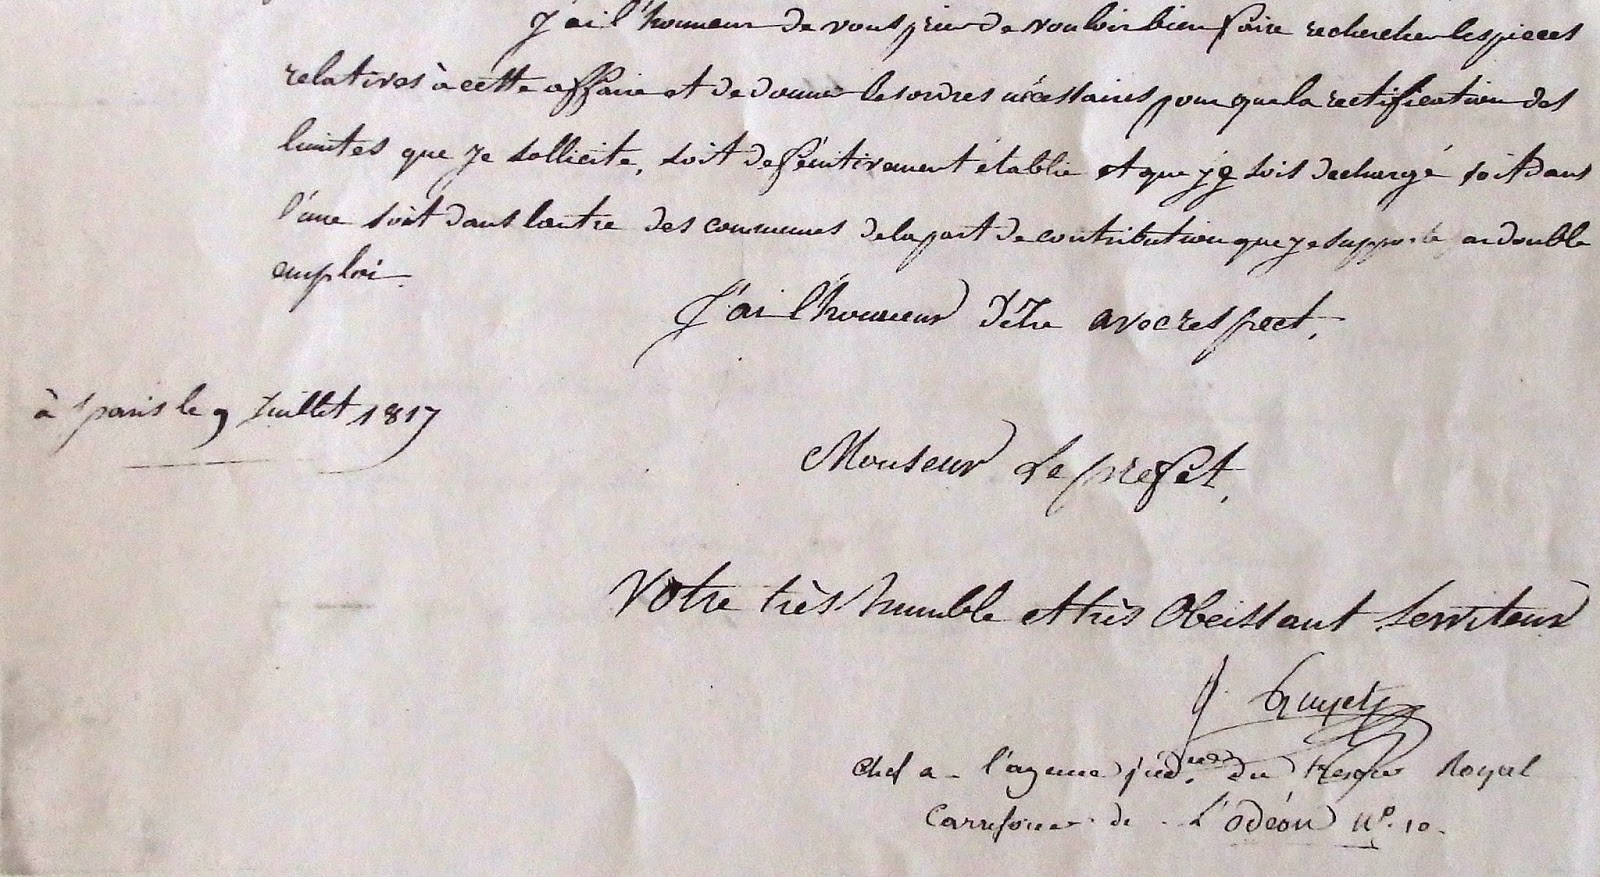 J'ai l'honneur de vous prier de vouloir bien faire rechercher les pieces
relatives à cette affaire et de donner les ordres nécessaires pour que la rectification des
limites que je sollicite, soit definitivement établie et que je sois dechargé soit dans
l'une soit dans l'autre des communes de la part de contribution que je supporte en double
emploi.
J'ai l'honneur d'être avec respect,
à paris le 9 Juillet 1817
Monsieur Le prefet,
Votre très humble et très Obeissant Serviteur
Chef a l'agence jud.re du Tresor Royal
Carrefour de L'odéon N.o 10.